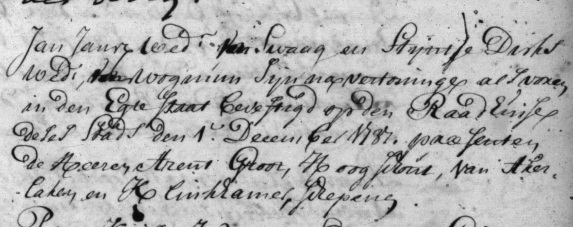 Jan Jansz Wed.r van Swaag en Trijntje Dirks
Wed.e van Wognum Sijn na vertoninge als voren
in den Egte Staat bevestigd op den Raadhuise
deser Stadt den 1.e December 1781. presenten
de Heeren Arent Groot, Hoog schout, van Aker-
laken en Klinkhamer, Schepene